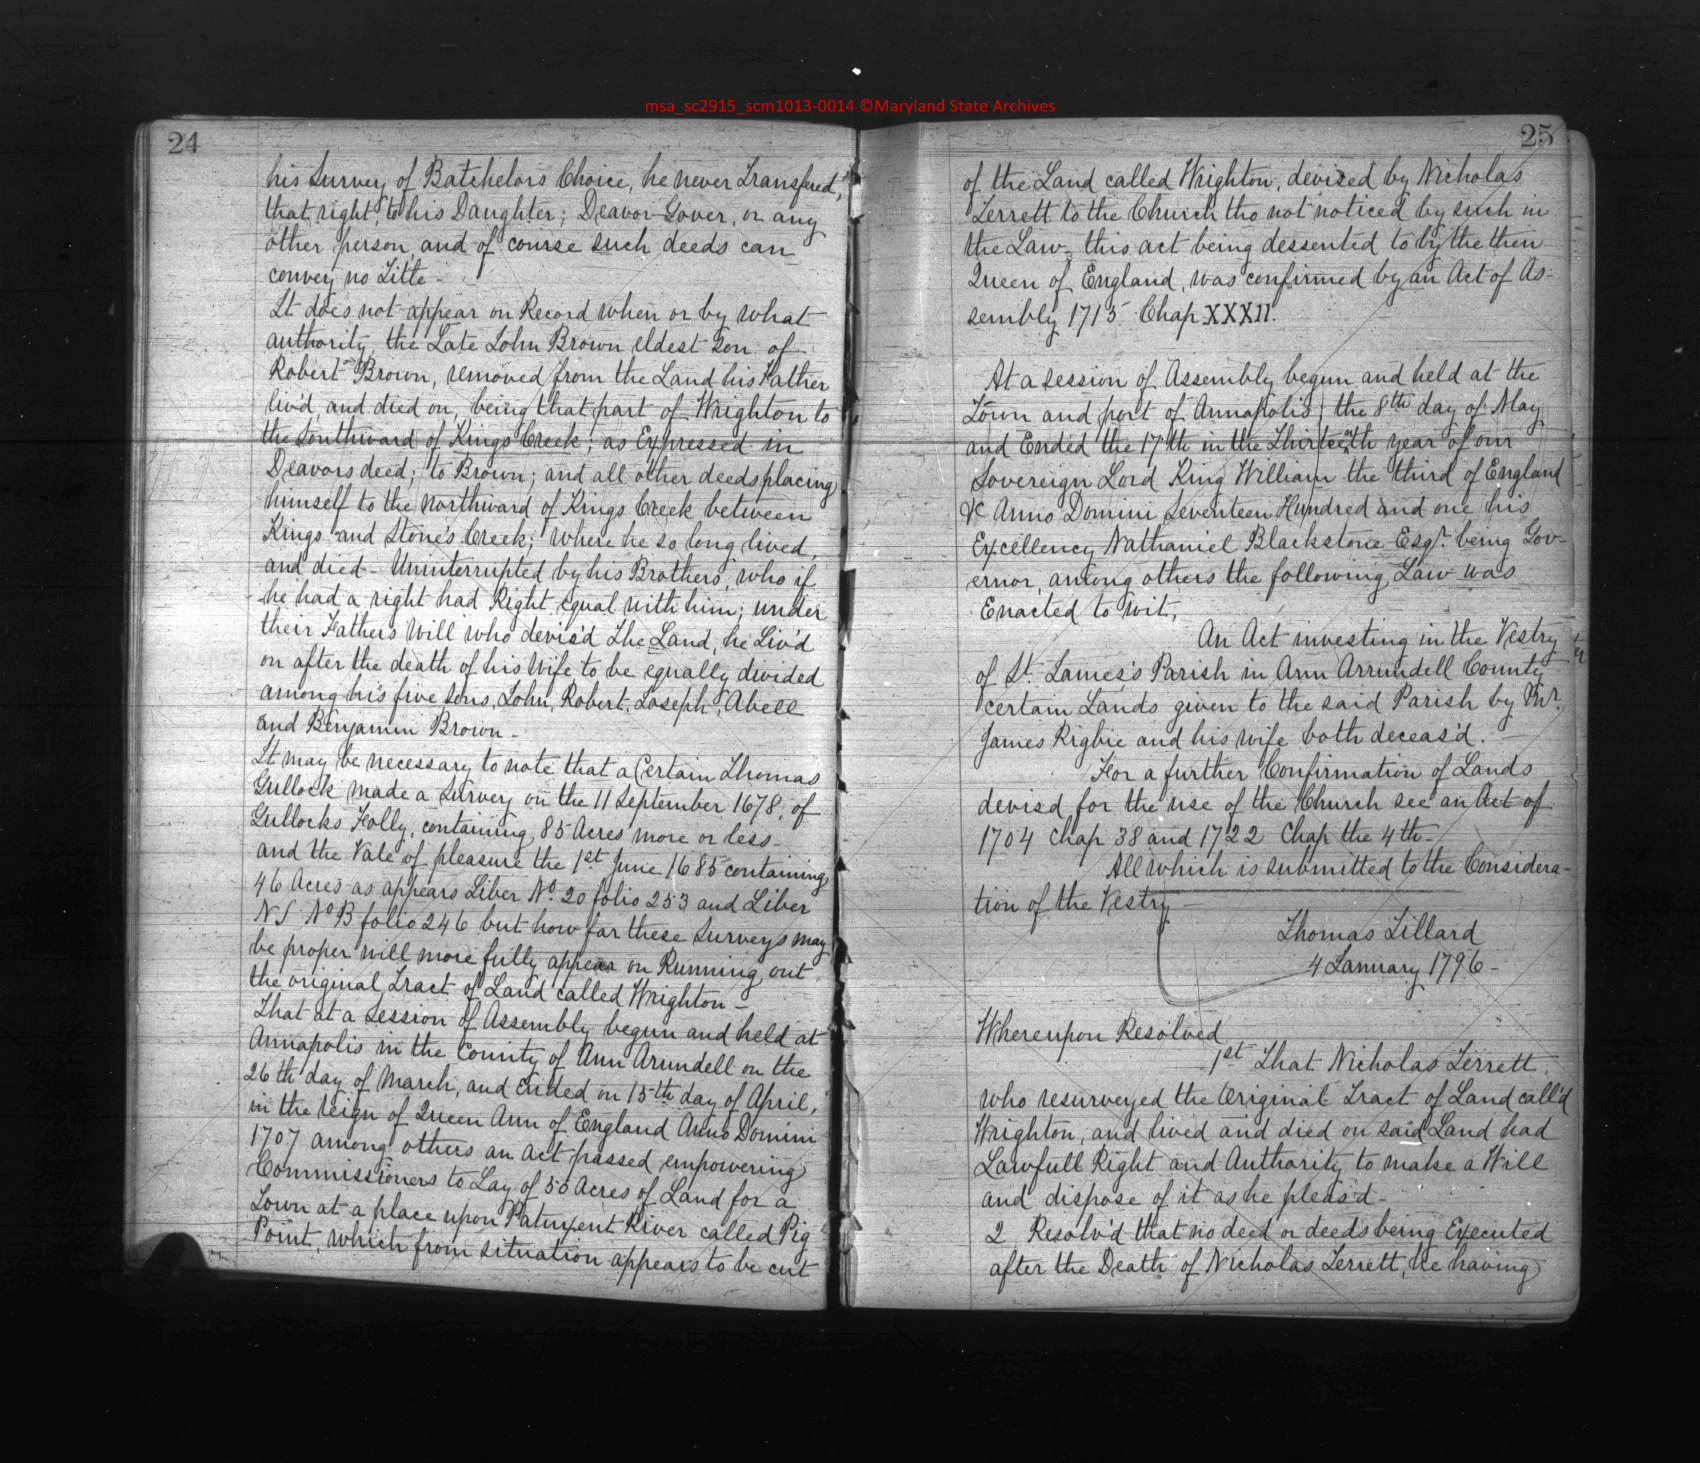 msa_sc2915_scm1013-0014 ©Maryland State Archives
24
his Survey of Batchelors Choice, he never Transfered,
that right to his Daughter; Deavor Gover, or any
other person, and of course such deeds can
convey no Title -
It does not appear on Record when or by what
authority, the Late John Brown eldest Son of
Robert Brown, removed from the Land his Father
liv'd, and died on, being that part of Wrighton to
the Southward of Kings Creek; as Expressed in
Deavors deed; to Brown; and all other deeds placing
himself to the Northward of Kings Creek between
Kings and Stone's Creek; where he so long lived,
and died - Uninterrupted by his Brothers, who if
he had a right had Right equal with him; under
their Fathers Will who devis'd The Land, he Liv'd
on after the death of his Wife to be equally divided
among his five Sons, John, Robert, Joseph, Abell
and Benjamin Brown -
It may be necessary to note that a Certain Thomas
Gullock made a Survey on the 11 September 1678, of
Gullocks Folly, containing 85 Acres more or less -
and the Vale of pleasure the 1st June 1685 containing
46 Acres as appears Liber No. 20 folio 253 and Liber
N S No B folio 246 but how far these Surveys may
be proper will more fully appear on Running out
the original Tract of Land called Wrighton -
That at a Session of Assembly begun and held at
Annapolis in the County of Ann Arundell on the
26th day of March, and Ended on 15th day of April,
in the reign of Queen Ann of England Anno Domini
1707 among others an Act passed empowering
Commissioners to Lay of 50 Acres of Land for a
Town at a place upon Patuxent River called Pig
Point, which from situation appears to be cut
25
of the Land called Wrighton, devised by Nicholas
Terrett to the Church tho not noticed by such in
the Law - this act being dessented to by the then
Queen of England, was confirmed by an Act of As-
sembly 1715 Chap XXXII.
At a session of Assembly begun and held at the
Town and port of Annapolis, the 8th day of May
and Ended the 17th in the Thirteenth year of our
Sovereign Lord King William the third of England
&c Anno Domini Seventeen Hundred and one his
Excellency Nathaniel Blackstone Esqr. being Gov-
ernor, among others the following Law was
Enacted to wit,
An Act investing in the Vestry
of St. James's Parish in Ann Arrundell County
certain Lands given to the said Parish by Mr.
James Rigbie and his wife both deceas'd.
For a further Confirmation of Lands
devisd for the use of the Church see an Act of
1704 Chap 38 and 1722 Chap the 4th -
All which is submitted to the Considera-
tion of the Vestry -
Thomas Tillard
4 January 1796 -
Whereupon Resolved
1st That Nicholas Terrett
who resurveyed the Original Tract of Land call'd
Wrighton, and lived and died on said Land had
Lawfull Right and Authority to make a Will
and dispose of it as he pleas'd -
2 Resolv'd that no deed or deeds being Executed
after the Death of Nicholas Terrett, he having